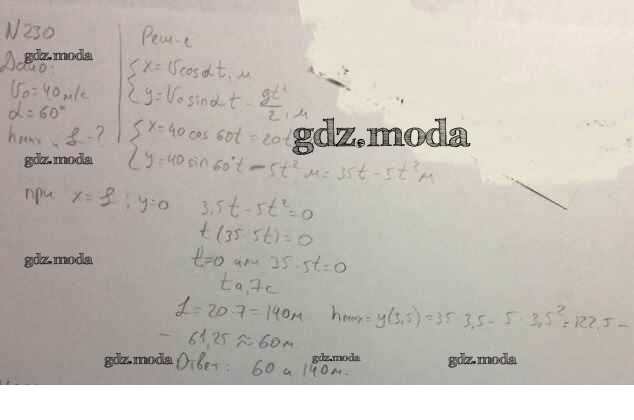 N 230
Дано:
V₀ = 40 м/с
α = 60°
hmax, L - ?
Реш-е
{ x = Vcosαt, м
{ y = V₀ sinαt - gt²/2, м
{ x = 40 cos 60t = 20t
{ y = 40 sin 60°t - 5t² м = 35t - 5t² м
при x = L; y = 0 3,5t - 5t² = 0
t (35 5t) = 0
t = 0 или 35 - 5t = 0
t 7c
L = 20 · 7 = 140 м hmax = y(3,5) = 35 · 3,5 - 5 · 3,5² = 122,5 -
- 61,25 ≈ 60 м
Ответ: 60 и 140 м.
gdz.moda
gdz.moda
gdz.moda
gdz.moda
gdz.moda
gdz.moda
gdz.moda